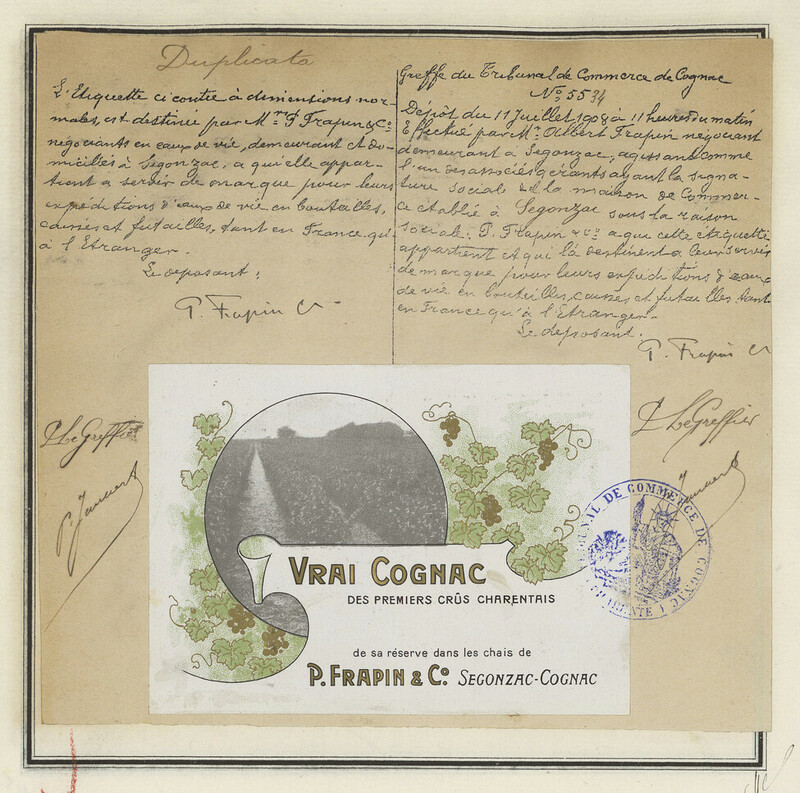 Duplicata
L'Etiquette ci contre à dimensions nor-
males, est destinée par Mrs P. Frapin & Co
négociants en eaux de vie, demeurant et do-
miciliés à Segonzac, a qu'elle appar-
tient a servir de marque pour leurs
expéditions d'eaux de vie en bouteilles,
caisses et futailles, tant en France qu'
à l'Etranger.
Le deposant:
P. Frapin Co
Greffe du Tribunal de Commerce de Cognac
No 5534
Dépôt du 11 Juillet 1908 à 11 heures du matin
Effectué par Mr Albert Frapin négociant
demeurant à Segonzac, agissant comme
l'un des associés gérants ayant la signa-
ture social de la maison de Commer-
ce établie à Segonzac sous la raison
sociale: P. Frapin & Co a que cette étiquette
appartient et qui la destinent a leur servir
de marque pour leurs expéditions d'eaux
de vie en bouteilles, caisses et futailles tant
en France qu'à l'Etranger.
Le deposant.
P. Frapin Co
P. Le Greffier
P. Le Greffier
VRAI COGNAC
DES PREMIERS CRÛS CHARENTAIS
de sa réserve dans les chais de
P. FRAPIN & Co. SEGONZAC-COGNAC
TRIBUNAL DE COMMERCE DE COGNAC
CHARENTE